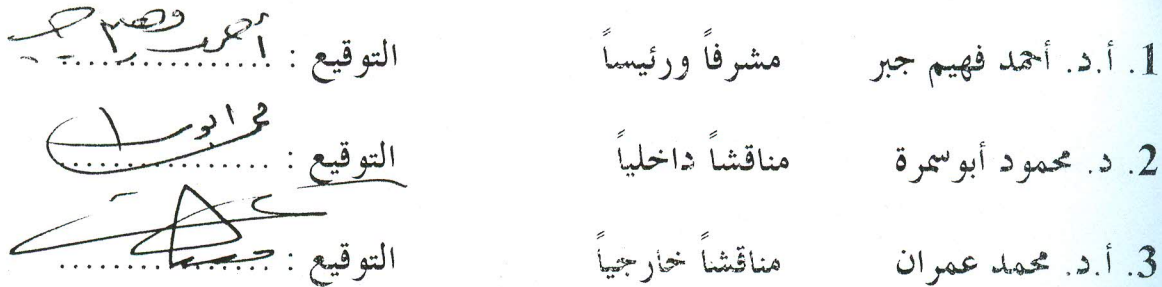 1. أ.د. أحمد فهيم جبر مشرفاً ورئيساً التوقيع : ................
2. د. محمود أبوسمرة مناقشاً داخلياً التوقيع : ................
3. أ.د. محمد عمران مناقشاً خارجياً التوقيع : ................